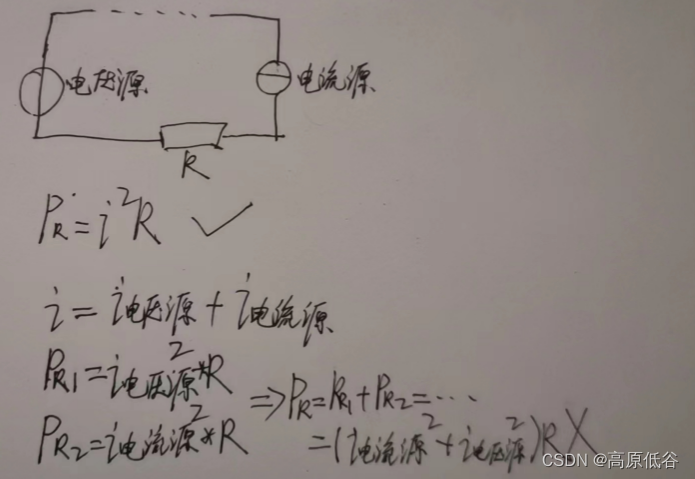 电压源 电流源
R
P_R=i²R ✓
i=i电压源+i电流源
P_R1=i电压源²*R
=>P_R=P_R1+P_R2=···
P_R2=i电流源²*R
=(i电流源²+i电压源²)R ×
CSDN @高原低谷